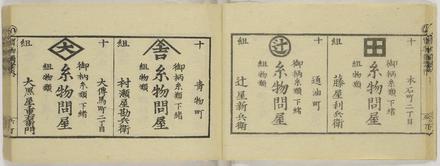 十
組
本石町二丁目
御柄糸類下緒
組物類
糸物問屋
藤屋利兵衛
十
組
辻
通油町
御柄糸類下緒
組物類
糸物問屋
辻屋新兵衛
十
組
舎
青物町
御柄糸類下緒
組物類
糸物問屋
村瀬屋勘兵衛
十
組
大
大傳馬町二丁目
御柄糸類下緒
組物類
糸物問屋
大黒屋重右衛門